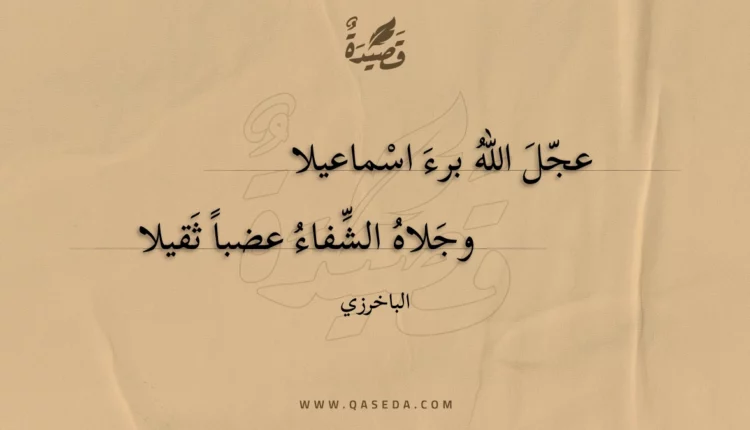 قَصِيْدَةٌ
عجّلَ اللهُ برءَ اسْماعيلا
وجَلاهُ الشِّفاءُ عضباً ثَقيلا
الباخرزي
WWW.QASEDA.COM